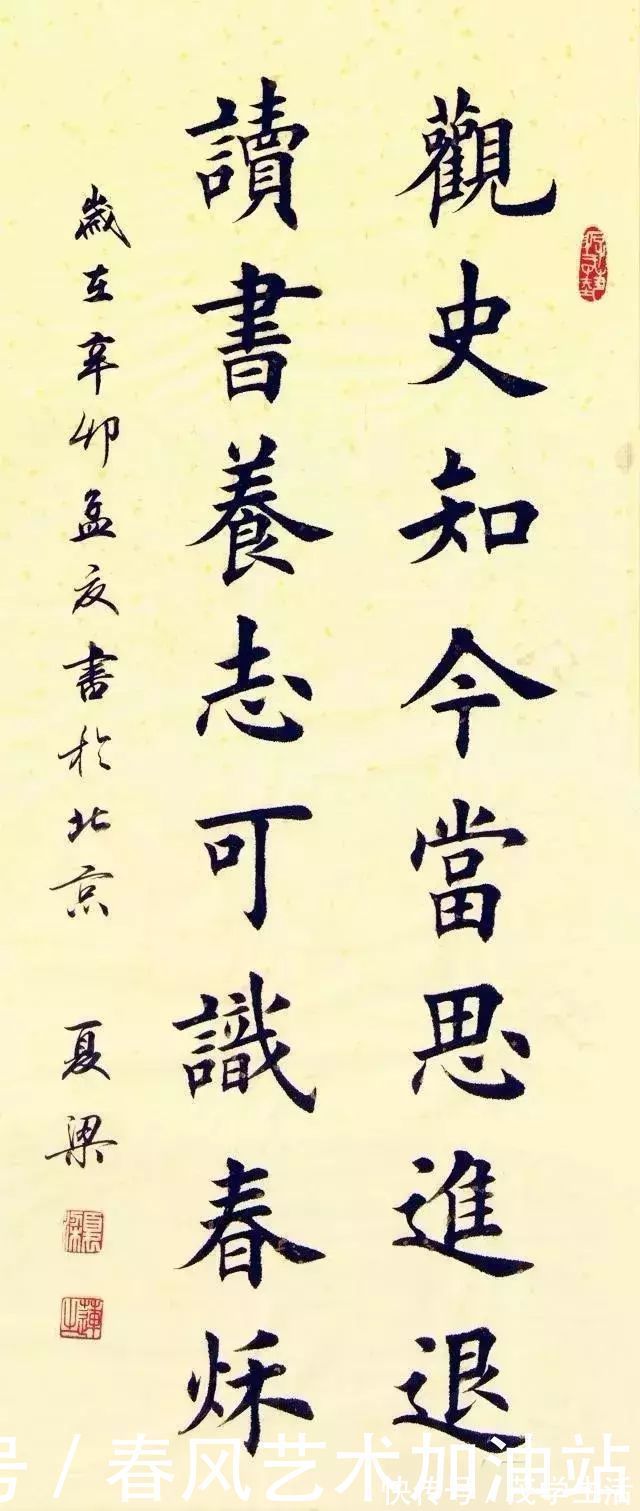 觀史知今當思進退
讀書養志可識春秌
歲在辛卯孟夏書於北京 夏梁
夏梁
号 / 春风艺术加油站
快传号 / 学生活